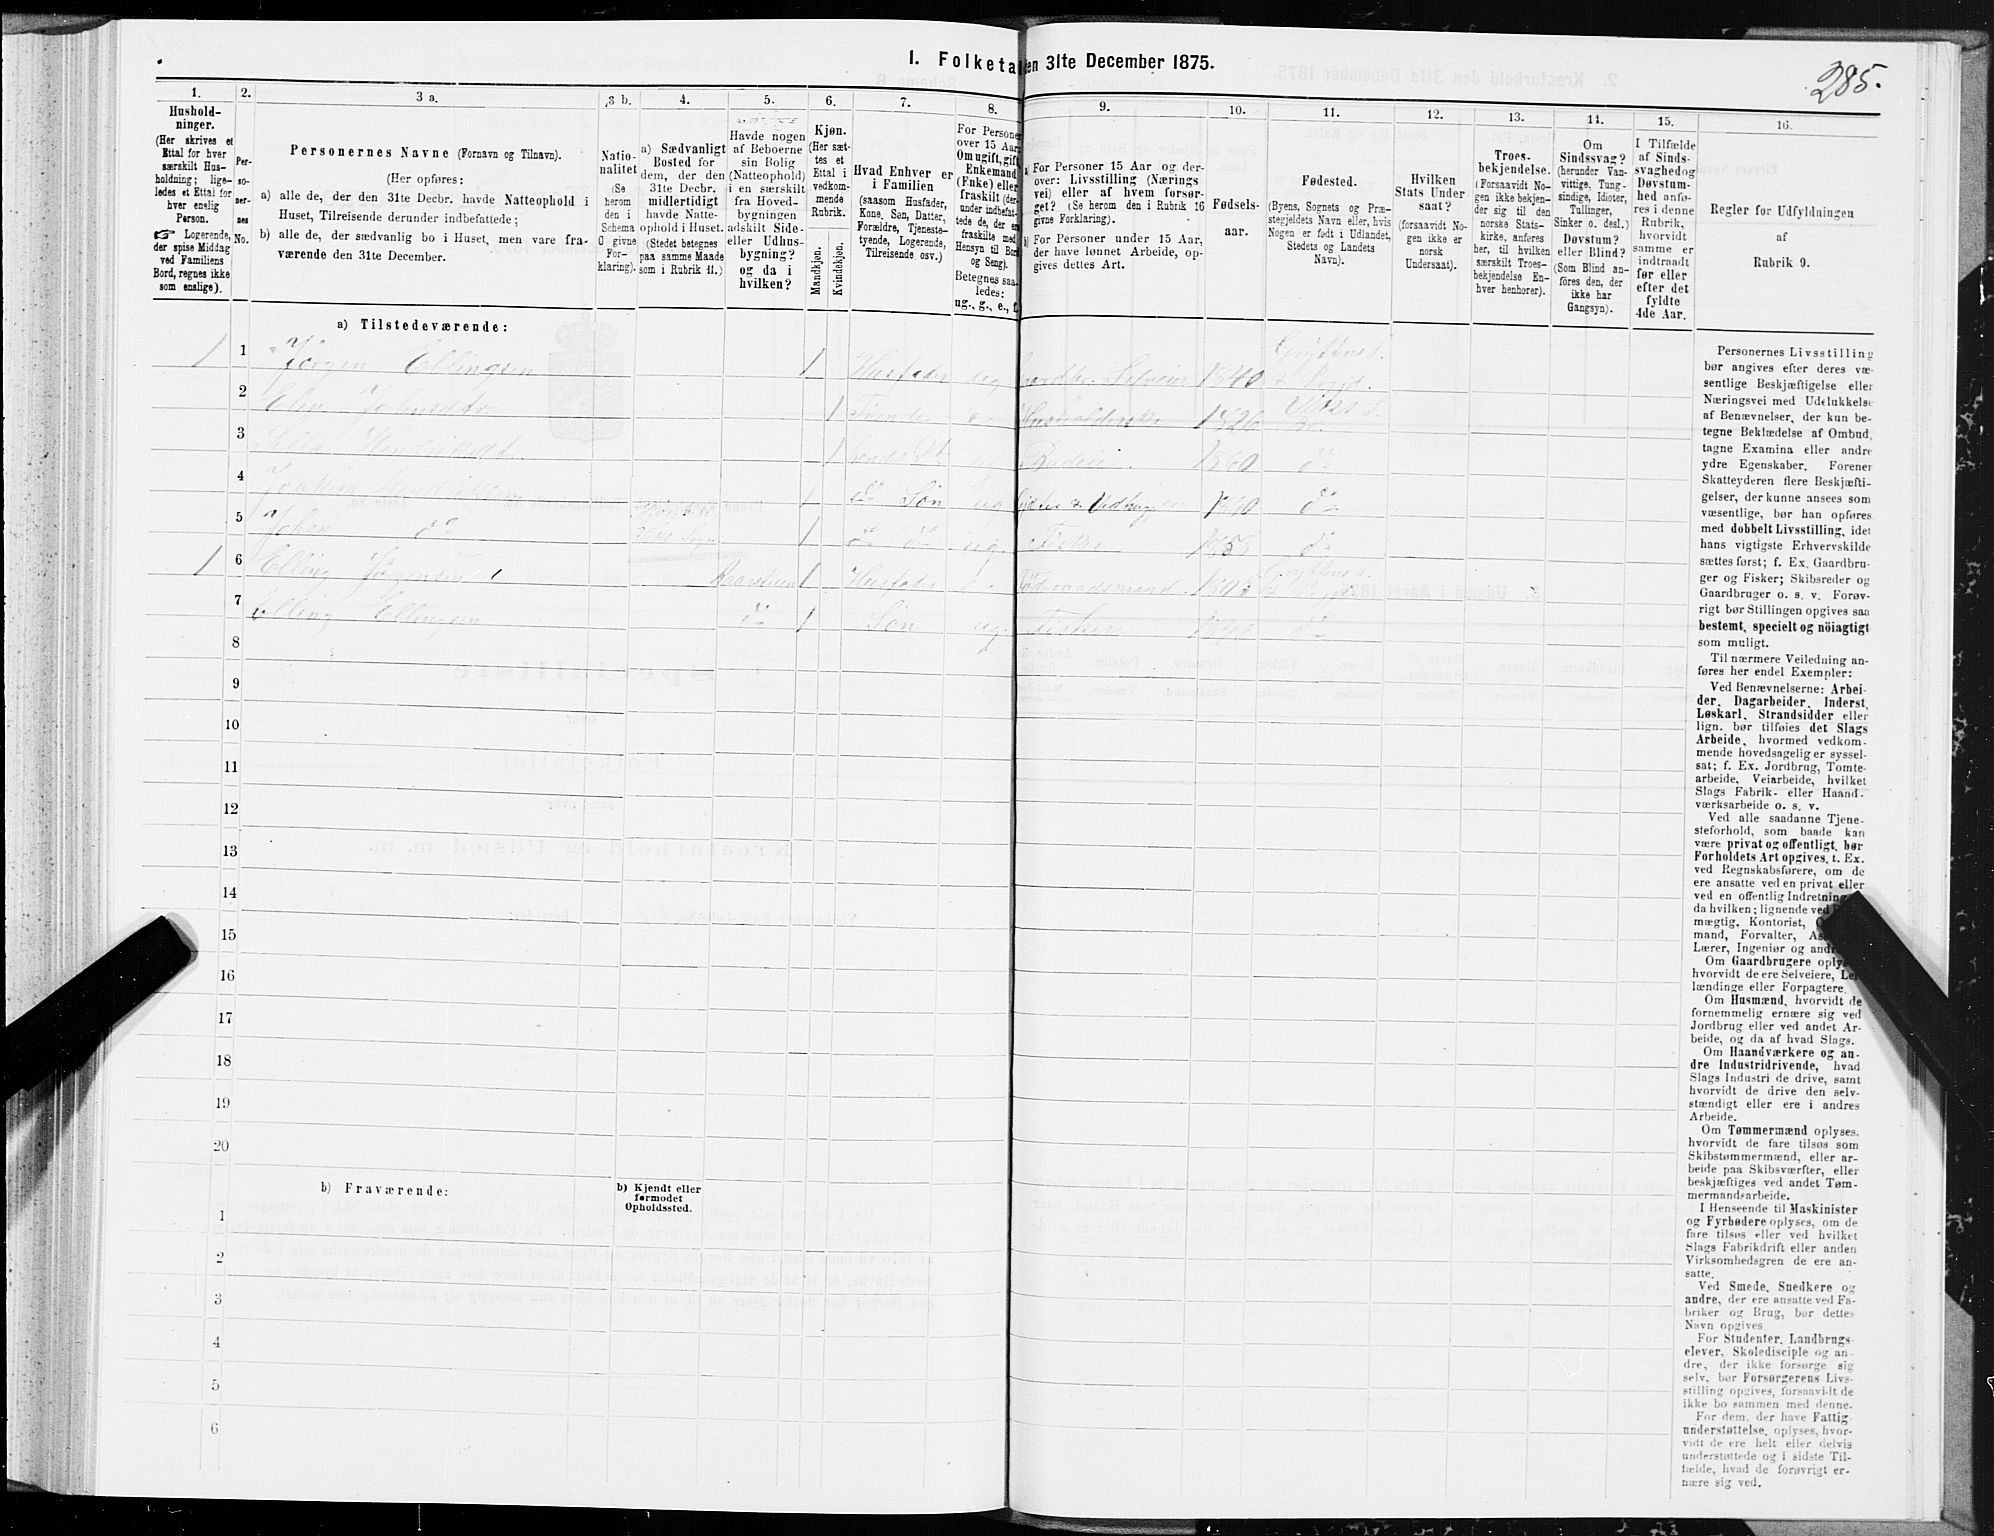 I. Folketal den 31te December 1875.
285.
1.
Hushold-
ninger.
(Her skrives et
Ettal for hver
særskilt Hus-
holdning; lige-
ledes et Ettal for
hver enslig
Person.
☞ Logerende,
der spise Middag
ved Familiens
Bord, regnes ikke
som enslige).
2.
Per-
so-
ner-
nes
No.
3 a.
Personernes Navne (Fornavn og Tilnavn).
(Her opføres:
a) alle de, der den 31te Decbr. havde Natteophold i
Huset, Tilreisende derunder indbefattede;
b) alle de, der sædvanlig bo i Huset, men vare fra-
værende den 31te December.
3 b.
Natio-
nalitet
(Se
herom
den i
Schema
O givne
For-
klaring).
4.
a) Sædvanligt
Bosted for
dem, der den
31te Decbr.
midlertidigt
havde Natte-
ophold i Huset.
(Stedet betegnes
paa samme Maade
som i Rubrik 11.)
5.
Havde nogen
af Beboerne
sin Bolig
(Natteophold)
i en særskilt
fra Hoved-
bygningen
adskilt Side-
eller Udhus-
bygning?
og da i
hvilken?
6.
Kjøn.
(Her sæt-
tes et
Ettal i
vedkom-
mende
Rubrik.
Mandkjøn.
Kvindekjøn.
7.
Hvad Enhver er
i Familien
(saasom Husfader,
Kone, Søn, Datter,
Forældre, Tjeneste-
tyende, Logerende,
Tilreisende osv.)
8.
For Personer
over 15 Aar:
Om ugift, gift,
Enkemand
(Enke) eller
fraskilt (der-
under indbefat-
tede de, der ere
fraskilte med
Hensyn til Bord
og Seng).
Betegnes saa-
ledes:
ug., g., e., f.
9.
a) For Personer 15 Aar og der-
over: Livsstilling (Nærings
vei) eller af hvem forsør-
get? (Se herom den i Rubrik 16
givne Forklaring).
b) For Personer under 15 Aar,
der have lønnet Arbeide, op-
gives dettes Art.
10.
Fødsels-
aar.
11.
Fødested.
(Byens, Sognets og Præ-
stegjeldets Navn eller, hvis
Nogen er født i Udlandet,
Stedets og Landets
Navn).
12.
Hvilken
Stats Under
saat?
(forsaavidt No-
gen ikke er
norsk
Undersaat).
13.
Troes-
bekjendelse.
(Forsaavidt No-
gen ikke bekjen-
der sig til den
norske Stats-
kirke, anføres
her, til hvilken
særskilt Troes-
bekjendelse En-
hver henhorer).
14.
Om
Sindssvag?
(herunder Van-
vittige, Tung-
sindige, Idioter,
Tullinger,
Sinker o. desl.)
Døvstum?
eller Blind?
(Som Blind an-
føres den, der
ikke har
Gangsyn).
15.
I Tilfælde
af Sinds-
svaghed og
Døvstum-
hed anfø-
res i denne
Rubrik,
hvorvidt
samme er
indtraadt
før eller
efter det
fyldte
4de Aar.
16.
Regler for Udfyldningen
af
Rubrik 9.
a) Tilstedeværende:
1 1 Jørgen Ellingsen 1 Husfader ug Selveier 1840 Gryttens S.
2 Elen 1 e Husholderske 1826
3 1 ug Budeie 1860 do
4 1 do Søn ug 1860 do
5 Johan do 1 do do ug. Fisker do
1 6 Elling Jørgensen 1 Husfader Gryttens S.
7 Elling Ellingsen do 1 Søn ug. Fisker do
8
9
10
11
12
13
14
15
16
17
18
19
20
b) Fraværende:
b) Kjendt eller
formodet
Opholdssted.
1
2
3
4
5
6
Personernes Livsstilling
bør angives efter deres væ-
sentlige Beskjæftigelse eller
Næringsvei med Udelukkelse
af Benævnelser, der kun be-
tegne Beklædelse af Ombud,
tagne Examina eller andre
ydre Egenskaber. Forener
Skatteyderen flere Beskjæfti-
gelser, der kunne ansees som
væsentlige, bør han opføres
med dobbelt Livsstilling, idet
hans vigtigste Erhvervskilde
sættes først; f. Ex. Gaardbru-
ger og Fisker; Skibsreder og
Gaardbruger o. s. v. Forøv-
rigt bør Stillingen opgives saa
bestemt, specielt og nöiagtigt
som muligt.
Til nærmere Veiledning an-
føres her endel Exempler:
Ved Benævnelserne: Arbei-
der, Dagarbeider, Inderst,
Løskarl, Strandsidder eller
lign. bør tilføies det Slags
Arbeide, hvormed vedkom-
mende hovedsagelig er syssel-
sat; f. Ex. Jordbrug, Tomte-
arbeide, Veiarbeide, hvilket
Slags Fabrik- eller Haand-
værksarbeide o. s. v.
Ved alle saadanne Tjene-
steforhold, som baade kan
være privat og offentligt, bør
Forholdets Art opgives, t. Ex.
ved Regnskabsførere, om de
ere ansatte ved en privat eller
ved en offentlig Indretning
da hvilken; lignende ved
mægtig, Kontorist,
mand, Forvalter,
Lærer, Ingeniør og
Om Gaardbrugere oplyses,
hvorvidt de ere Selveiere, Lei-
lændinge eller Forpagtere.
Om Husmænd, hvorvidt de
fornemmelig ernære sig ved
Jordbrug eller ved andet Ar-
beide, og da af hvad Slags.
Om Haandværkere og an-
dre Industridrivende, hvad
Slags Industri de drive, samt
hvorvidt de drive den selv-
stændigt eller ere i andres
Arbeide.
Om Tømmermænd oplyses,
hvorvidt de fare tilsøs som
Skibstømmermænd, eller ar-
beide paa Skibsværfter, eller
beskjæftiges ved andet Tøm-
mermandsarbeide.
I Henseende til Maskinister
og Fyrbødere oplyses, om de
fare tilsøs eller ved hvilket
Slags Fabrikdrift eller anden
Virksomhedsgren de ere an-
satte.
Ved Smede, Snedkere og
andre, der ere ansatte ved Fa-
briker og Brug, bør dettes
Navn opgives
For Studenter, Landbrugs-
elever, Skoledisciple og an-
dre, der ikke forsørge sig
selv, bør Forsørgerens Livs-
stilling opgives, forsaavidt de
ikke bo sammen med denne.
For dem, der have Fattig-
understøttelse, oplyses, hvor-
vidt de ere helt eller delvis
understøttede og i sidste Til-
fælde, hvad de forøvrigt er-
nære sig ved.